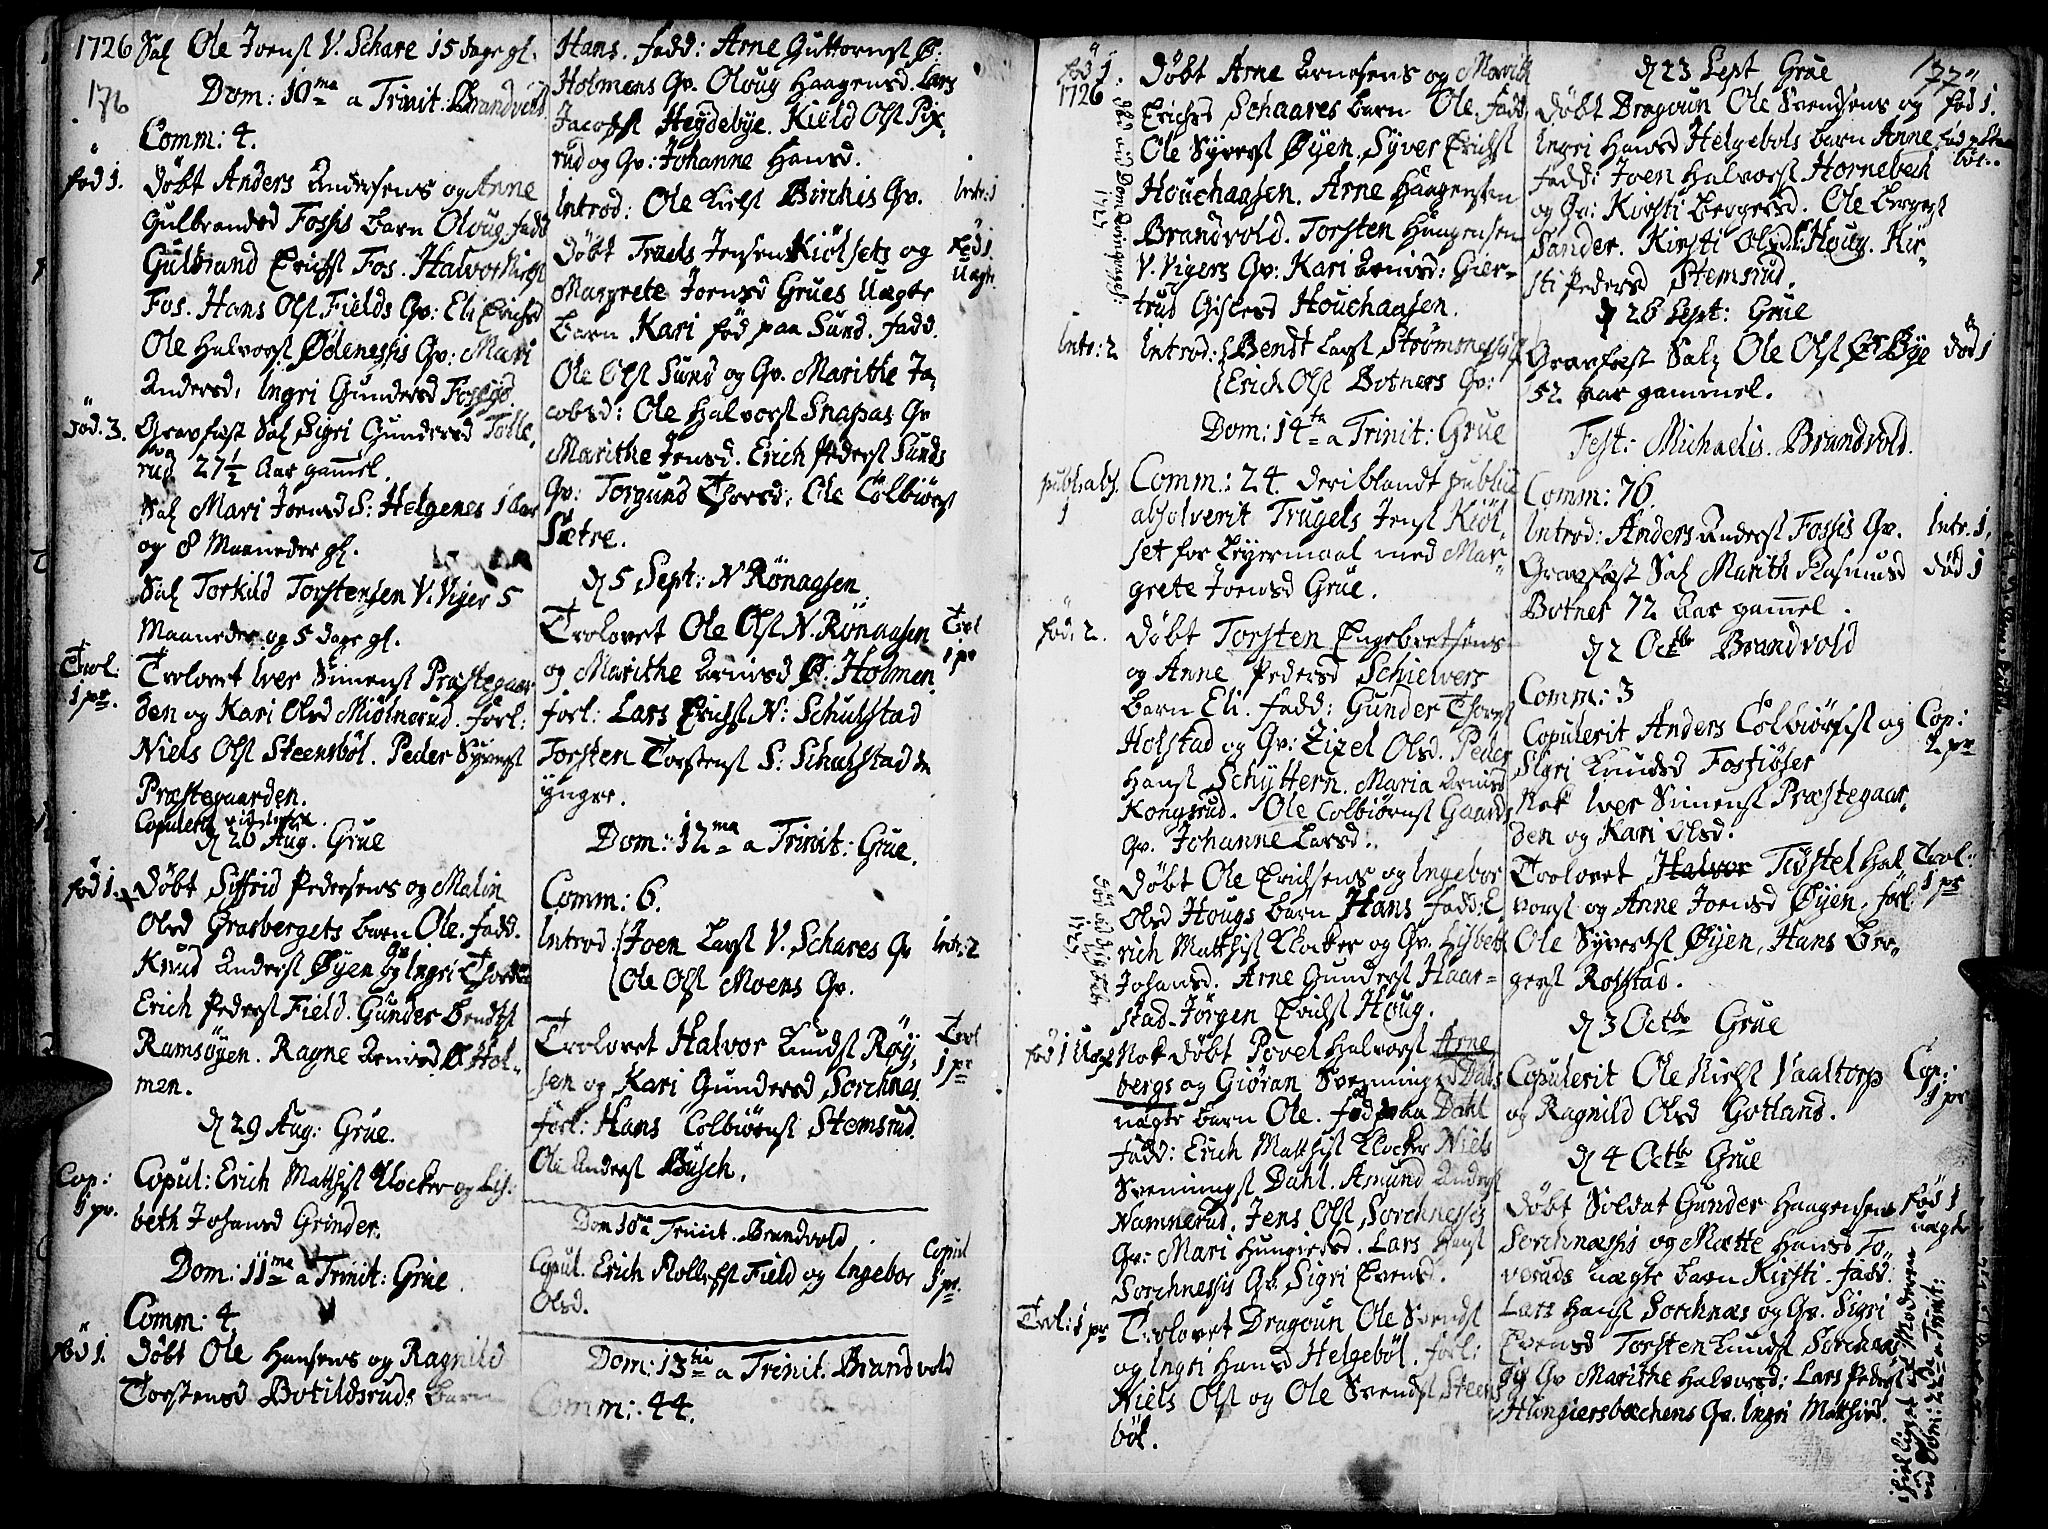 1726
176
Sal Ole Joensl V. Schare 15 dage gl.
Dom: 10ma a Trinit: Brandvold
Comm: 4.
fød 1.
Døbt Anders Andersens og Anne
Gulbrandsd Fossis barn Oloug. fadd
Gulbrand Erichsl Fos. Halvor
Fos. Hans Olsl Fields Qv: Eli Erichsd
Ole Halvorsl Ødenessis Qv: Mari
Andersd. Ingri Gundersd
død. 3.
Gravfæst Sal Sigri Gundersd Tolle,
rud 27½ Aar gamel.
Sal Mari Joensd S: Helgenes 1 Aar
og 8 Maaneder gl.
Sal Torkild Torstensen V. Viger 5
Maaneder og 5 dage gl.
Trol.
1 pr.
Trolovet Iver Simensl Præstegaar
den og Kari Olsd Miølnerud. forl:
Niels Olsl Steensbøl. Peder Syversl
Præstegaarden.
Copulera
d 26 Aug. Grue
fød 1.
Døbt Siffrid Pedersens og Malin
Olsd Grasbergets barn Ole. fadd.
Knud Andersl Øyen og Qv Ingri Thordsd
Erich Pedersl Field. Gunder Bendtsl
Ramsøyen. Ragne Arnesd Ø. Hol-
men.
d 29 Aug: Grue.
Cop:
1 pr.
Copul: Erich Matthisl Klocker og Lis-
beth Johansd Grinder.
Dom: 11me a Trinit: Grue.
Comm: 4.
fød 1.
Døbt Ole Hansens og Ragnild
Torstensd Botildsruds barn
Hans. fadd: Arne Guttormsl Ø.
Holmens Qv. Oloug Haagensd. Lars
Jacobsl Heydebye. Kield Olsl Pix-
rud og Qv: Johanne Hansd.
Introd: Ole Birchis Qv.
Intr: 1
Døbt Traels Jensen Kiølsets og
Margrete Joensd Grues Uægte
barn Kari fød paa Sund. fadd.
Ole Olsl Sund og Qv. Marithe Ja-
cobsd: Ole Halvorsl Snapas Qv
Marithe Jensd. Erich Pedersl Sunds
Qv: Torgund Thorsd: Ole Colbiørsl
Sætre.
fød 1
Uægt.
d 5 Sept: N Rønaasen
Trolovet Ole Olsl N. Rønaasen
og Marithe Arnesd Ø. Holmen.
forl: Lars Erichsl N: Schulstad
Torsten Torstensl S: Schulstad den
yngre.
Trol
1 pr
Dom: 12ma a Trinit: Grue.
Comm: 6.
Introd: Joen Larsl V. Schares Qv
Ole Olsl Moens Qv.
Intr: 2
Trolovet Halvor Knudsl Røy,
sen og Kari Gundersd Sorchnes.
forl: Hans Colbiørnsl Stemsrud.
Ole Andersl Busch.
Trol
1 pr
Dom 10ma a Trinit. Brandvold
Copul. Erich Rollefsl Field og Ingebor
Olsd.
Copul
1 pr.
Dom: 13tia a Trinit. Brandvold
Comm: 44.
fød 1.
1726
Døbt Arne Arnesens og Marith
Erichsd Schaares barn Ole. fadd
Ole Syversl Øyen, Syver Erichsl
Houchaasen. Arne Haagensen
Brandvold. Torsten Haagensen
V. Vigers Qv: Kari Arnesd: Gier-
trud Gislersd Houchaasen.
Intr: 2
Introd: Bendt Larsl Strømnessis Qv
Erich Olsl Botners Qv:
Dom: 14ta a Trinit: Grue
publ: abs.
1
Comm: 24. Deriblandt publice
absolverit Trugels Jensl Kiøl-
set for Leyermaal med Mar-
grete Joensd Grue.
fød: 2.
Døbt Torsten Engebretsens
og Anne Pedersd Schielvers
barn Eli. fadd: Gunder Thorsl
Holstad og Qv: Zizel Olsd. Peder
Hansl Schyttern. Maria Arnesd
Kongsrud. Ole Colbiørnsl Gaards
Qv. Johanne Larsd.
Døbt Ole Erichsens og Ingebor
Olsd Hougs barn Hans. fadd: E-
rich Matthisl Klocker og Qv. Lisbeth
Johansd. Arne Gundersl Haar-
stad. Jørgen Erichsl Houg.
fød 1 Uægt
Nok døbt Povel Halvorsl Arne
bergs og Giøran Svennings D Dals
uægte barn Ole. fød paa Dahl
fadd: Erich Matthisl Klocker Niels
Svenningsl Dahl. Amund Andersl
Namnerud. Jens Olsl Sorchnessis
Qv: Mari Hungiersd. Lars Hansl
Sorchnessis Qv. Sigri Evensd.
Trol: 1 pr
Trolovet Dragoun Ole Svendsl
og Ingri Hansd Helgebøl. forl:
Niels Olsl og Ole Svendsl Steens
bøl.
177
d 23 Sept Grue
Døbt Dragoun Ole Svendsens og
Ingri Hansd Helgebøls barn Anne
fadd: Joen Halvorsl Hornebech
og Qv: Kirsti Bergersd. Ole Bergersl
Sander. Kirsti Olsd Houg. Kir-
sti Pedersd Stemsrud.
fød 1.
d 28 Sept: Grue
Gravfæst Sal Ole Olsl Bye
52 Aar gammel.
død 1
Fest: Michaelis. Brandvold.
Comm: 76.
Introd: Anders Andersl Fossis Qv.
Intr. 1.
Gravfæst Sal Marith Rasmusd
Botner 72 Aar gamel.
død 1
d 2 Octbr Brandvold
Comm: 3
Copulerit Anders Colbiørnsl og
Sigri Knudsd Fosziøser
Nok Iver Simensl Præstegaar,
den og Kari Olsd.
Cop:
2 pr
Trolovet Halvor Tiøstel Hal
vorsl og Anne Joensd Øyen. forl.
Ole Syvertsl Øyen, Hans Ber-
gersl Rolstad.
Trol:
1 pr
d 3 Octbr Grue
Copulerit Ole Nielsl Vaaltorp
og Ragnild Olsd Gotland.
Cop:
1 pr
d 4 Octbr Grue
Døbt Soldat Gunder Haagensens
Sorchnæssis og Mætte Hansd To-
veruds uægte barn Kirsti. fadd.
Lars Hansl Sorchnæs og Qv. Sigri
Evensd Torsten Knudsl Sorchnæs
sis Qv Marithe Halvorsd: Lars Pedersl
Hungiersbechens Qv. Ingri Matthisd.
fød 1
uægte